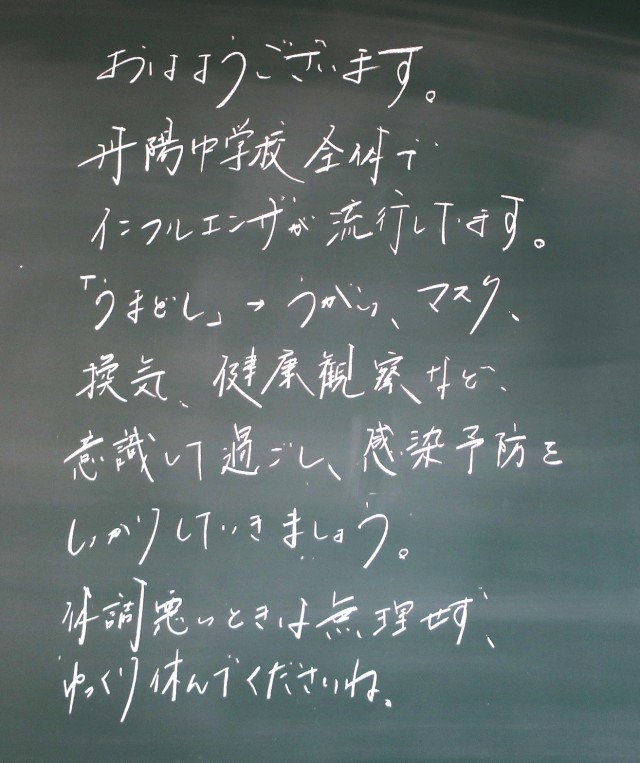 おはようございます。
丹陽中学校全体で
インフルエンザが流行しています。
「うまどし」→うがい、マスク、
換気、健康観察など、
意識して過ごし、感染予防を
しっかりしていきましょう。
体調悪いときは無理せず、
ゆっくり休んでくださいね。